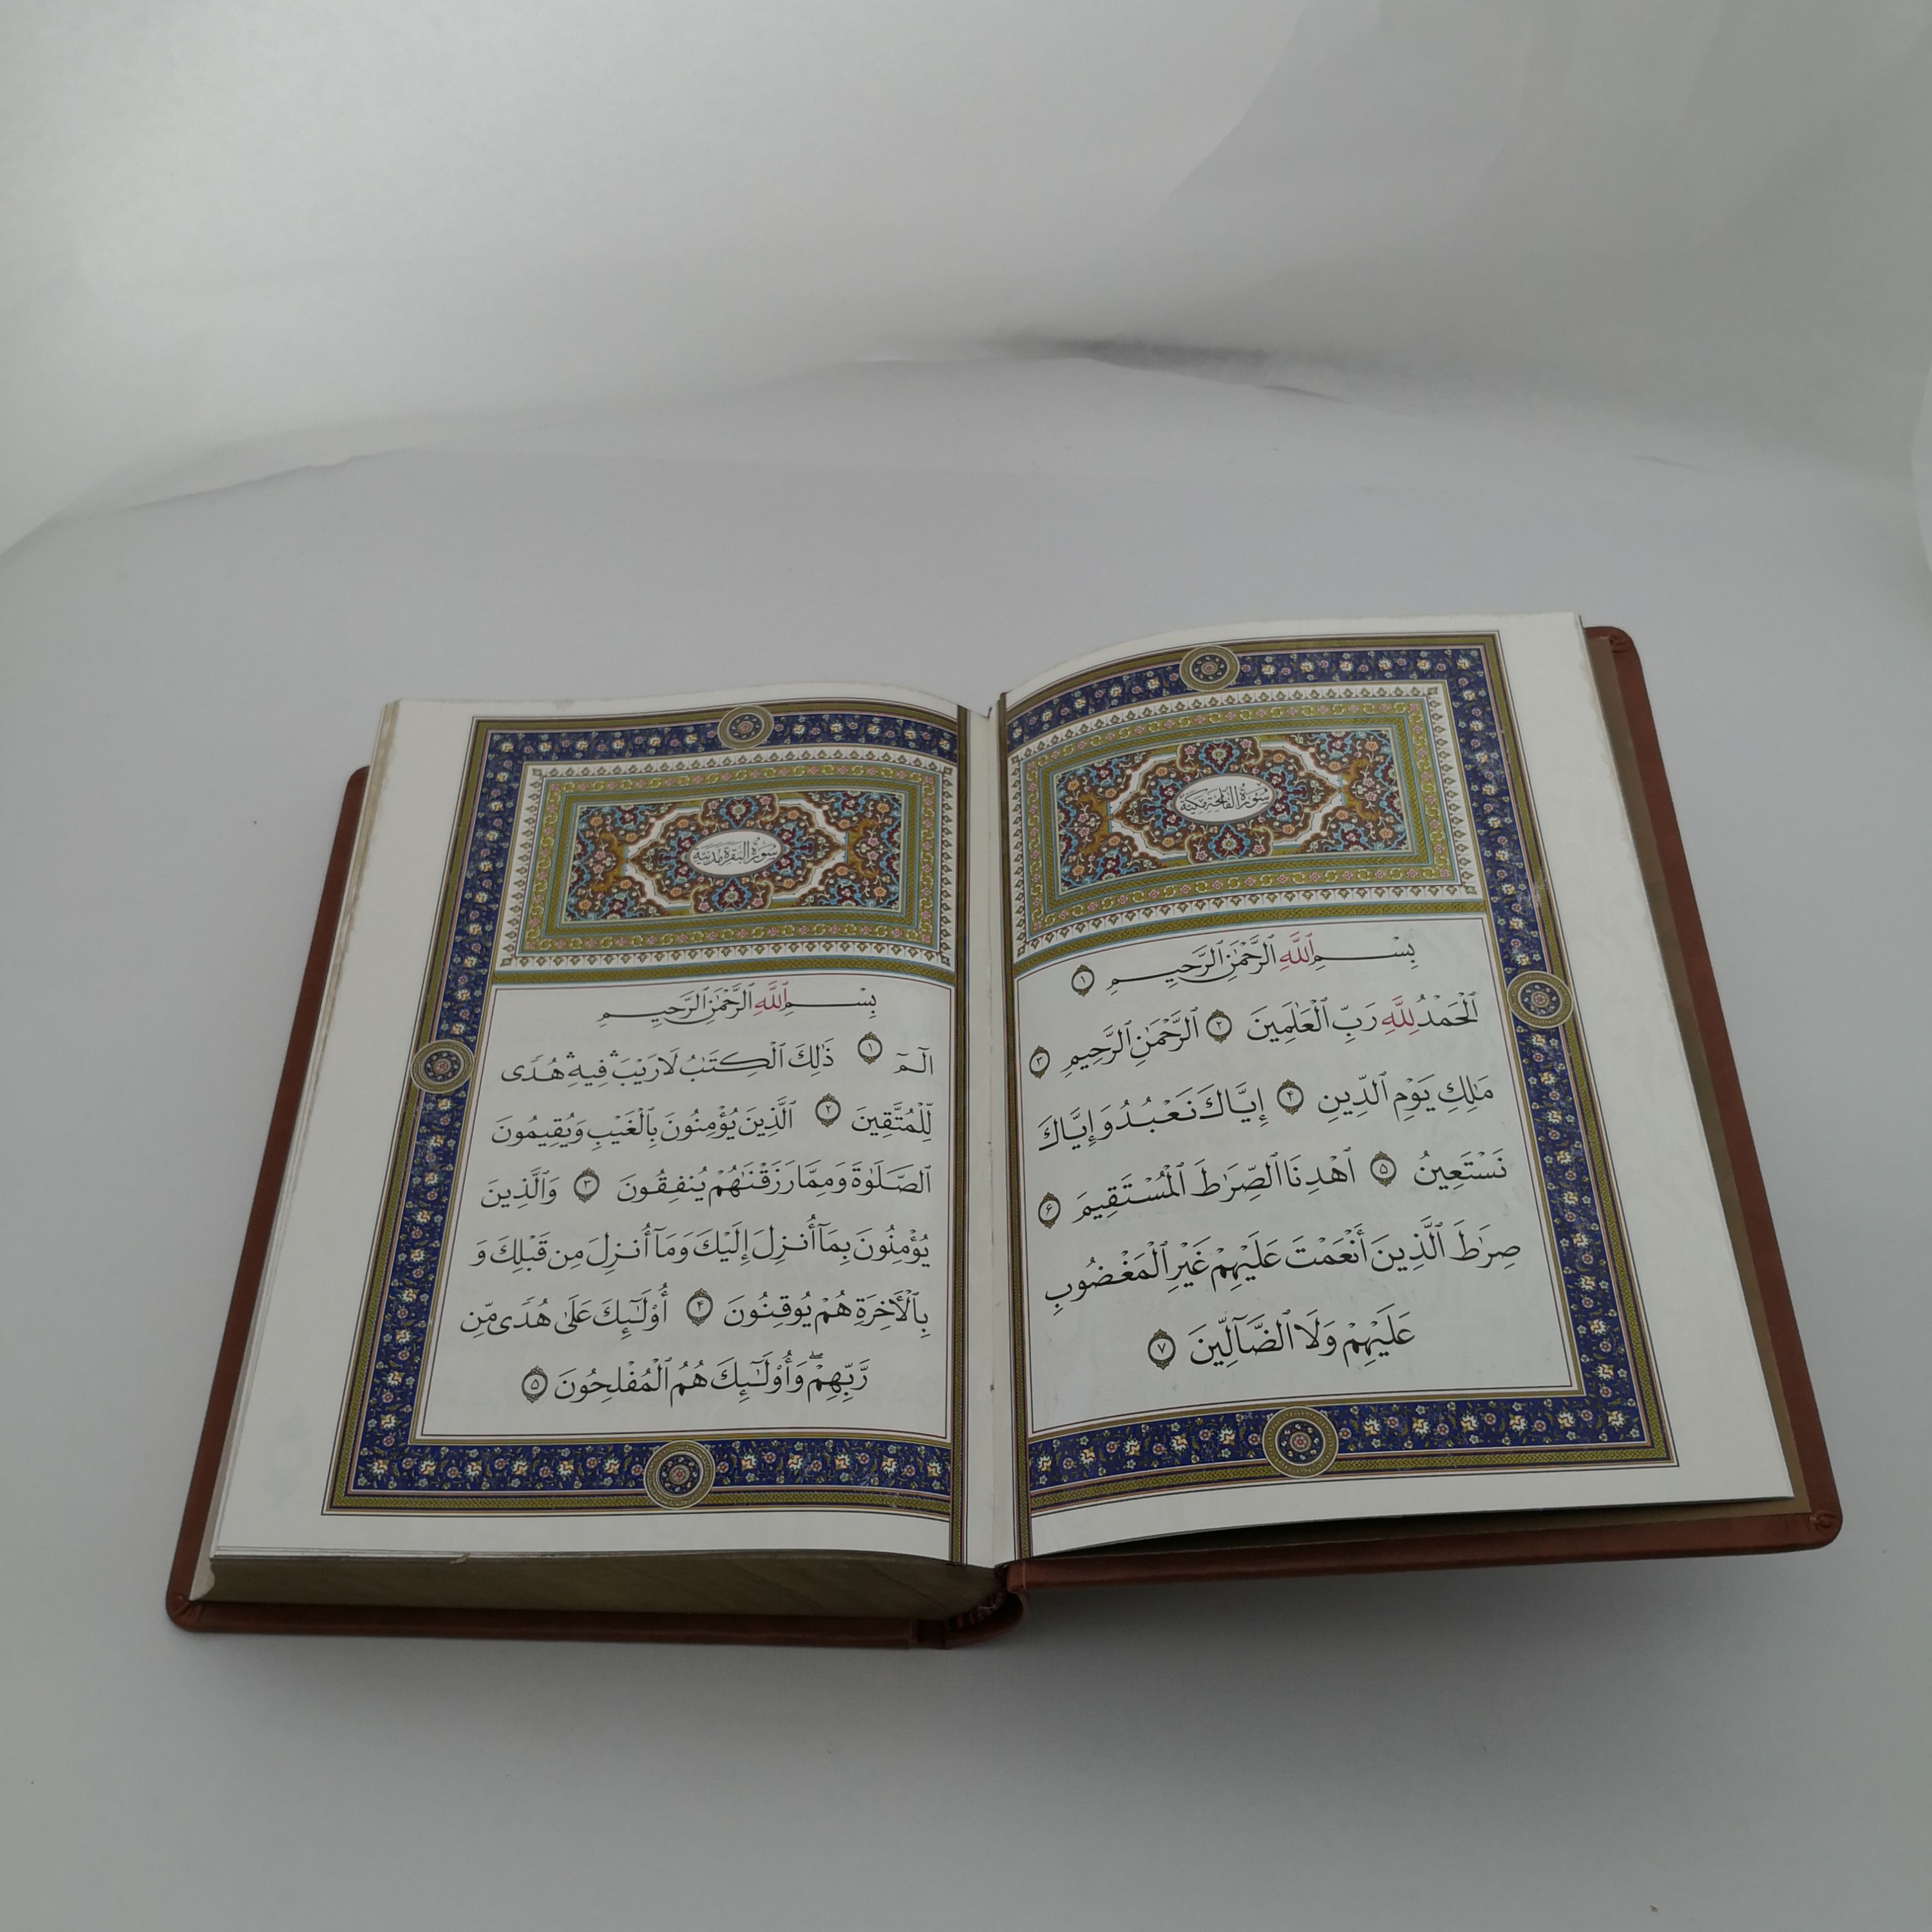 سُورَةُ الْفَاتِحَةِ مَكِّيَّة
بِسْمِ ٱللَّهِ ٱلرَّحْمَٰنِ ٱلرَّحِيمِ ۱
ٱلْحَمْدُ لِلَّهِ رَبِّ ٱلْعَٰلَمِينَ ۲ ٱلرَّحْمَٰنِ ٱلرَّحِيمِ ۳
مَٰلِكِ يَوْمِ ٱلدِّينِ ۴ إِيَّاكَ نَعْبُدُ وَإِيَّاكَ
نَسْتَعِينُ ۵ ٱهْدِنَا ٱلصِّرَٰطَ ٱلْمُسْتَقِيمَ ۶
صِرَٰطَ ٱلَّذِينَ أَنْعَمْتَ عَلَيْهِمْ غَيْرِ ٱلْمَغْضُوبِ
عَلَيْهِمْ وَلَا ٱلضَّآلِّينَ ۷
سُورَةُ الْبَقَرَةِ مَدَنِيَّة
بِسْمِ ٱللَّهِ ٱلرَّحْمَٰنِ ٱلرَّحِيمِ
الٓمٓ ۱ ذَٰلِكَ ٱلْكِتَٰبُ لَا رَيْبَ ۛ فِيهِ ۛ هُدًى
لِّلْمُتَّقِينَ ۲ ٱلَّذِينَ يُؤْمِنُونَ بِٱلْغَيْبِ وَيُقِيمُونَ
ٱلصَّلَوٰةَ وَمِمَّا رَزَقْنَٰهُمْ يُنفِقُونَ ۳ وَٱلَّذِينَ
يُؤْمِنُونَ بِمَآ أُنزِلَ إِلَيْكَ وَمَآ أُنزِلَ مِن قَبْلِكَ وَ
بِٱلْأَخِرَةِ هُمْ يُوقِنُونَ ۴ أُوْلَٰٓئِكَ عَلَىٰ هُدًى مِّن
رَّبِّهِمْ ۖ وَأُوْلَٰٓئِكَ هُمُ ٱلْمُفْلِحُونَ ۵